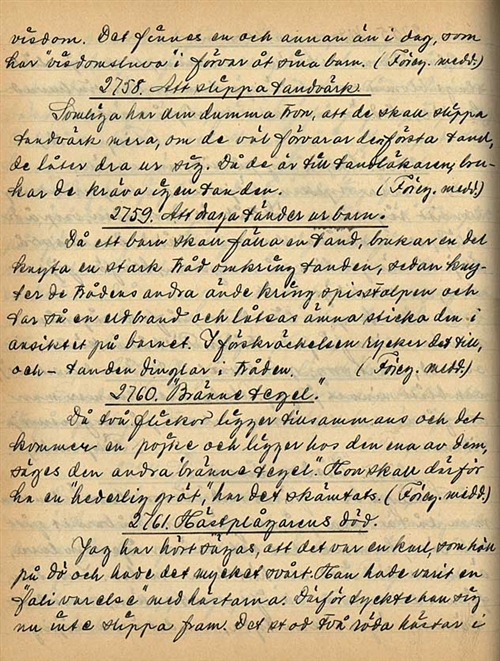 visdom. Det finnes en och annan än i dag, som
har "visdomsluva" i förvar åt sina barn. (Föreg. medd.)
2758. Att slippa tandvärk.
Somliga har den dumma tron, att de skall slippa
tandvärk mera, om de väl förvarar den första tand,
de låter dra ur sig. Då de är till tandläkaren, bru-
kar de kräva igen tanden. (Föreg. medd.)
2759. Att draga tänder ur barn.
Då ett barn skall fälla en tand, brukar en del
knyta en stark tråd omkring tanden, sedan kny-
ter de trådens andra ände kring spisstolpen och
tar så en eldbrand och låtsas ämna sticka den i
ansiktet på barnet. I förskräckelsen rycker det till,
och - tanden dinglar i tråden. (Föreg. medd.)
2760. "Bränne tegel".
Då två flickor ligger tillsammans och det
kommer en pojke och ligger hos den ena av dem,
säges den andra "bränne tegel." Hon skall därför
ha en "hederlig gröt," har det skämtats. (Föreg. medd.)
2761. Hästplågarens död.
Jag har hört sägas, att det var en karl, som höll
på dö och hade det mycket svårt. Han hade varit en
"fali varelse" med hästarna. Därför tyckte han sig
nu inte slippa fram. Det stod två röda hästar i